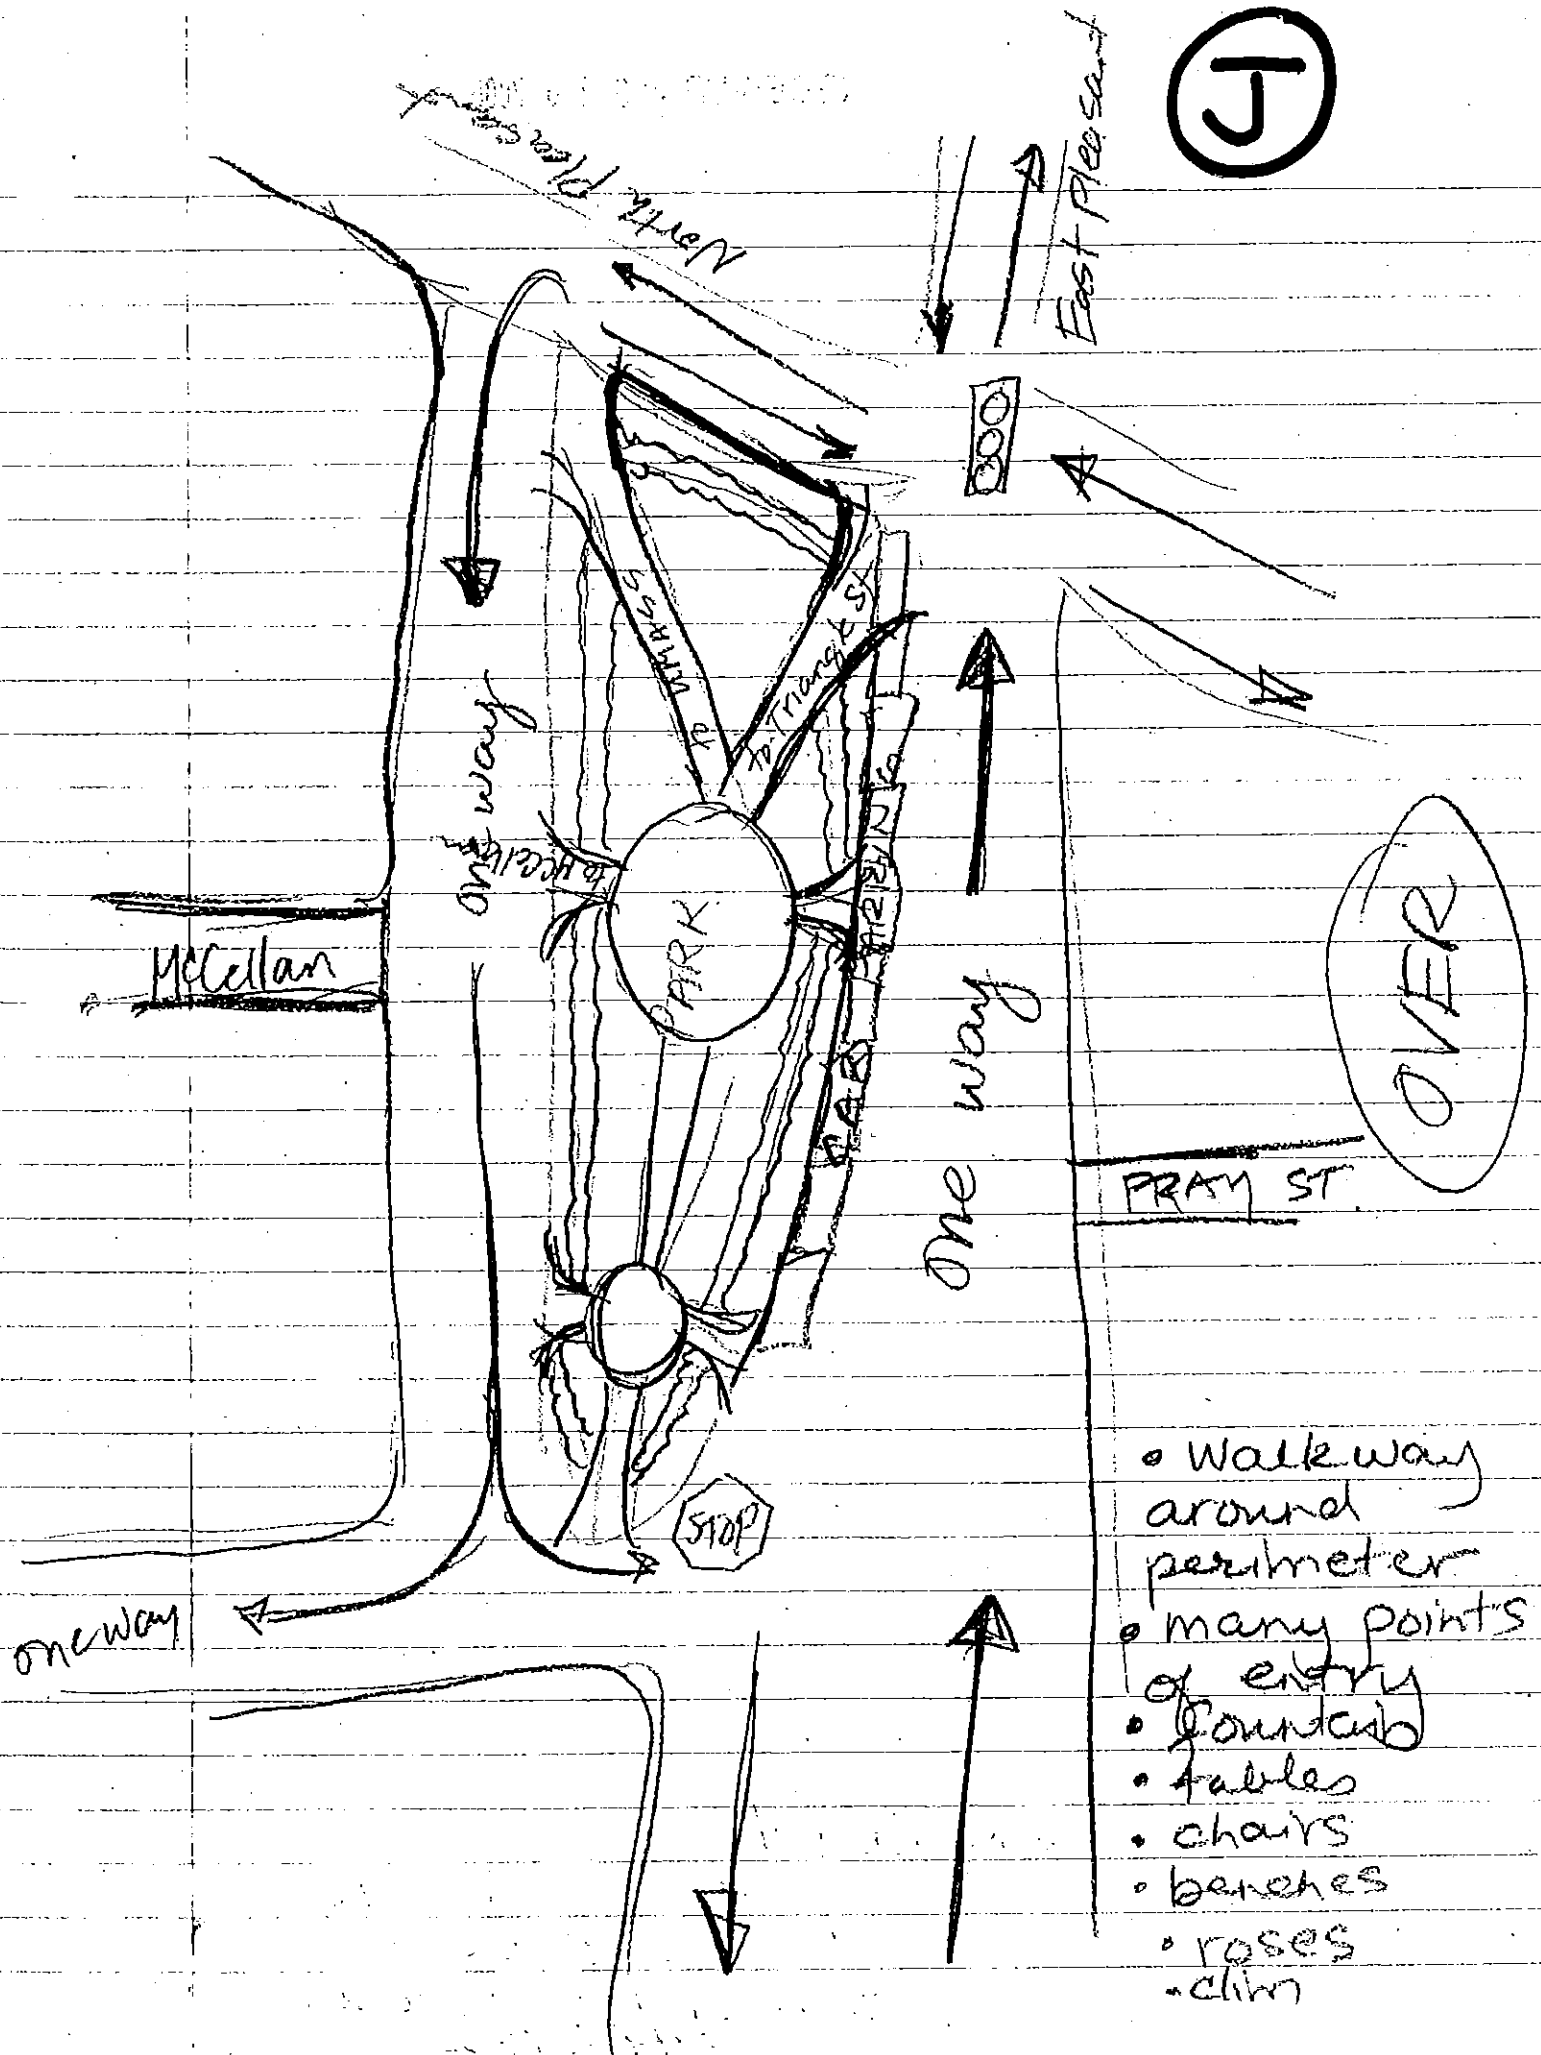 J
East Pleasant
North Pleasant
to UMASS
to Triangle St
one way
to McCellan
PARK
PARKING
McCellan
one way
OVER
PRAY ST.
STOP
one way
• Walkway
around
perimeter
• many points
of entry
• fountain
• tables
• chairs
• benches
• roses